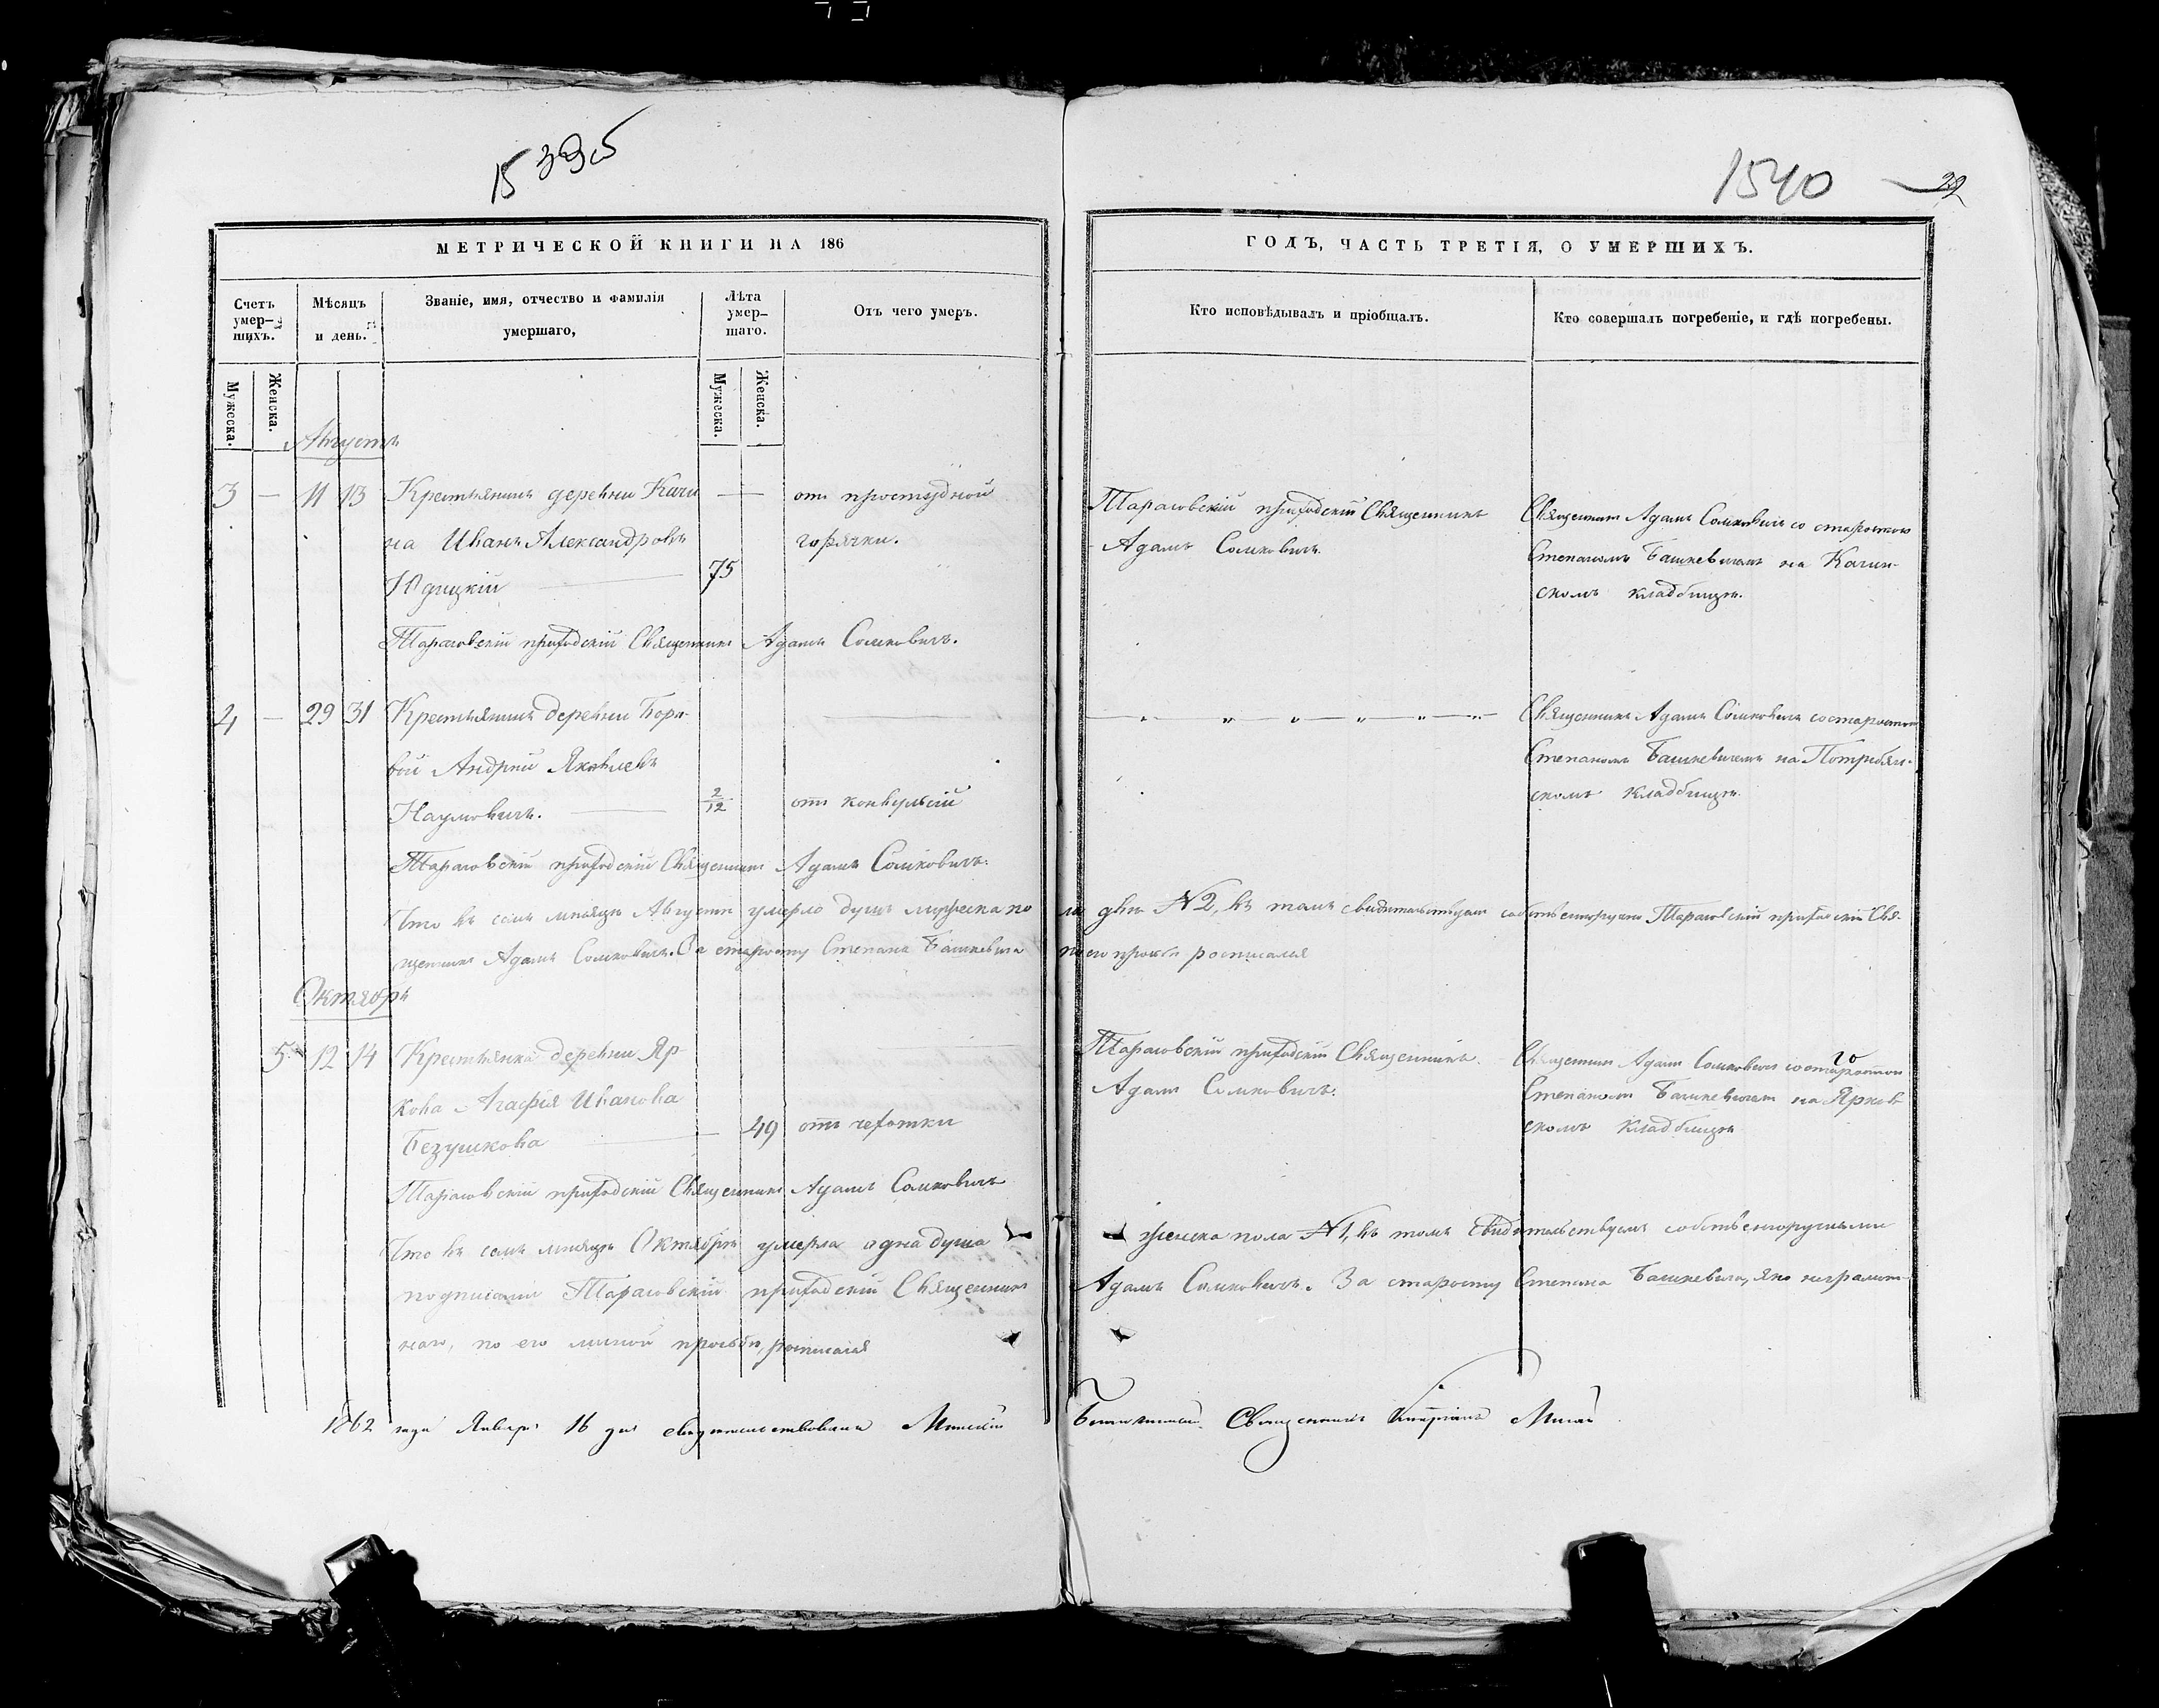 1540
22
МЕТРИЧЕСКОЙ КНИГИ НА 186
ГОДЪ, ЧАСТЬ ТРЕТІЯ, О УМЕРШИХЪ.
Счетъ умер-шихъ.
Мѣсяцъ и день.
Званіе, имя, отчество и фамилія
умершаго,
Лѣта умер-шаго.
Отъ чего умеръ.
Кто исповѣдывалъ и пріобщалъ.
Кто совершалъ погребеніе, и гдѣ погребены.
Мужеска.
Женска.
Мужеска.
Женска.
Августъ
3 — 11 13 Крестьянинъ деревни Качи
на Иванъ Александровъ
Юдицкій 75
отъ простудной
горячки.
Тарасовскій приходскій Священникъ
Адамъ Сомковичъ.
Священникъ Адамъ Сомковичъ со старостою
Степаномъ Башкевичемъ на Качин-
скомъ кладбищѣ.
Тарасовскій приходскій Священникъ Адамъ Сомковичъ.
4 — 29 31 Крестьянинъ деревни Боро-
вой Андрей Яковлевъ
Наумовичъ. 2/12 отъ конвульсій
Священникъ Адамъ Сомковичъ со старостою
Степаномъ Башкевичемъ на
скомъ кладбищѣ.
Тарасовскій приходскій Священникъ Адамъ Сомковичъ.
Что въ семъ мѣсяцѣ Августѣ умерло душъ мужеска по
ла двѣ №2, въ томъ свидѣтельствуемъ собственноручно Тарасовскій приходскій Свя-
щенникъ Адамъ Сомковичъ. За старосту Степана Башкевича
по его просьбѣ росписался
Октябрь
5 12 14 Крестьянка деревни Яр-
кова Агафія Иванова
Безушкова — 49 отъ чехотки
Тарасовскій приходскій Священникъ
Адамъ Сомковичъ.
Священникъ Адамъ Сомковичъ со старостою
Степаномъ Башкевичемъ на Ярков
скомъ кладбищѣ
Тарасовскій приходскій Священникъ Адамъ Сомковичъ
Что въ семъ мѣсяцѣ Октябрѣ умерла одна душа
женска пола №1, въ томъ свидѣтельствуемъ собственноручными
подписами Тарасовскій приходскій Священникъ
Адамъ Сомковичъ. За старосту Степана Башкевича, яко неграмот-
наго, по его личной просьбѣ, росписался
1862 года Января 16 дня свидѣтельствовалъ Минскій
Благочинный Священникъ